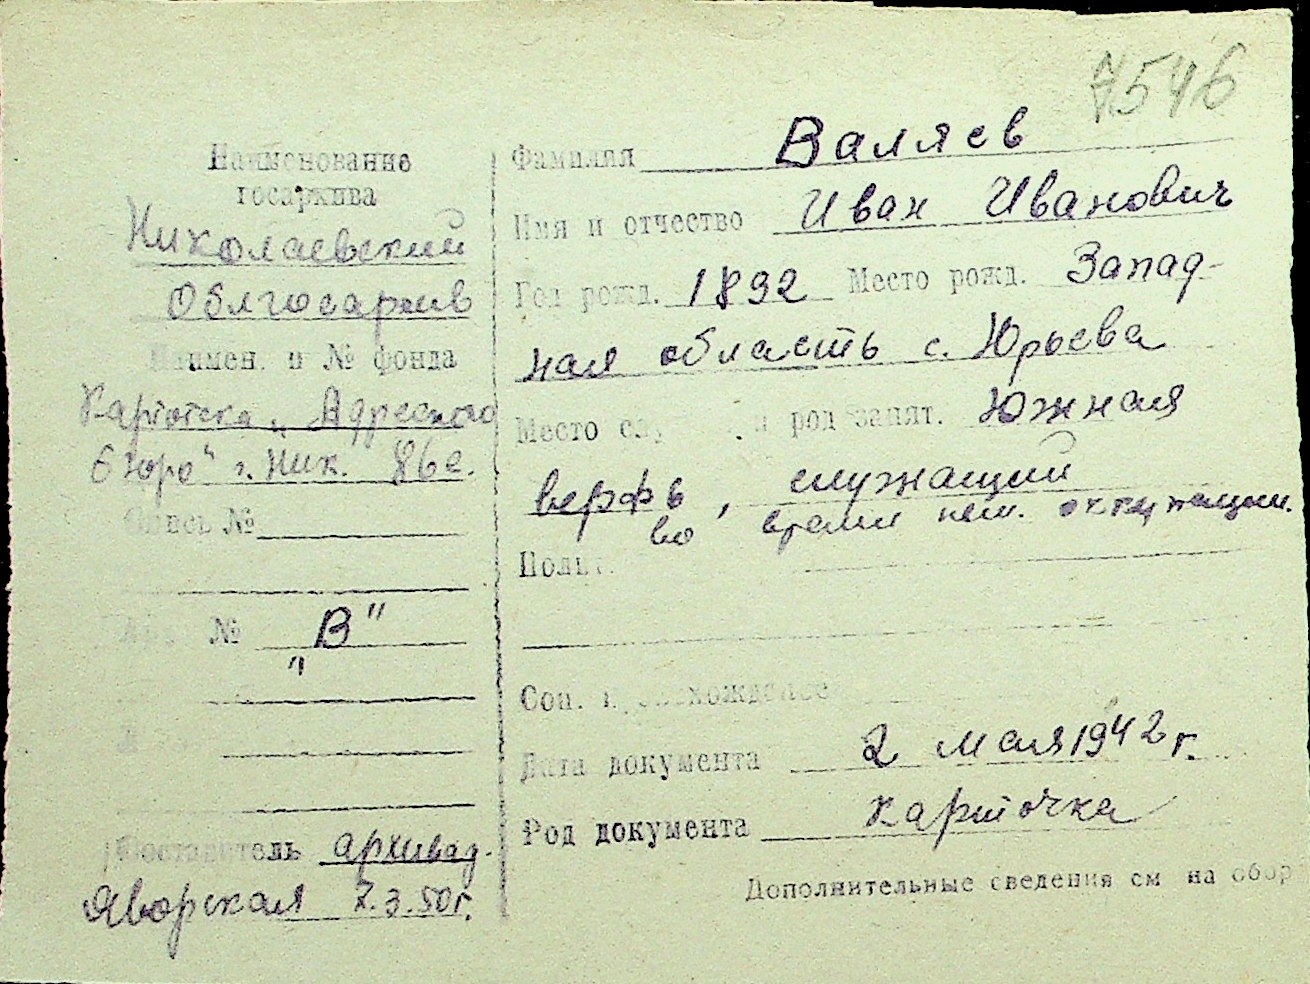 7546
Наименование
госархива
Николаевский
Облгосархив
Наимен. и № фонда
Картотека „Адресного
бюро" г. Ник. 86е.
Опись №
№ „В"
Составитель архивад.
Яворская 7.3.50г.
Фамилия Валяев
Имя и отчество Иван Иванович
Год рожд. 1892 Место рожд. Запад-
ная область с. Юрьева
Место и род занят. Южная
верфь, служащий
во время нем. оккупации.
Дата документа 2 мая 1942 г.
Род документа карточка
Дополнительные сведения см на обор